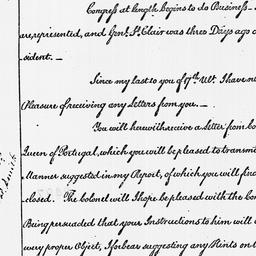 Congress at length begins to do Business —
are, represented, and Genl. St. Clair was three Days ago
sident. —
Since my last to you of 17th. Ult. I have n
Pleasure of receiving any Letters from you. —
You will herewith receive a Letter from Co
Queen of Portugal, which you will be pleased to transmi
Manner suggested in my Report, of which you will find
closed. The Colonel will I hope be pleased with the Con
Being persuaded that your Instructions to him will
very proper Object, I forbear suggesting any Hints on t